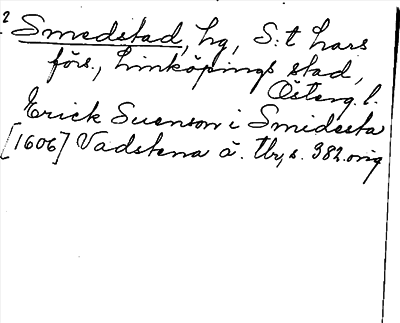 2
Smedstad, hg, S:t Lars
förs., Linköpings stad,
Österg. l.
Erick Suenson i Smidesta
[1606] Vadstena ä. tb, s. 382. orig